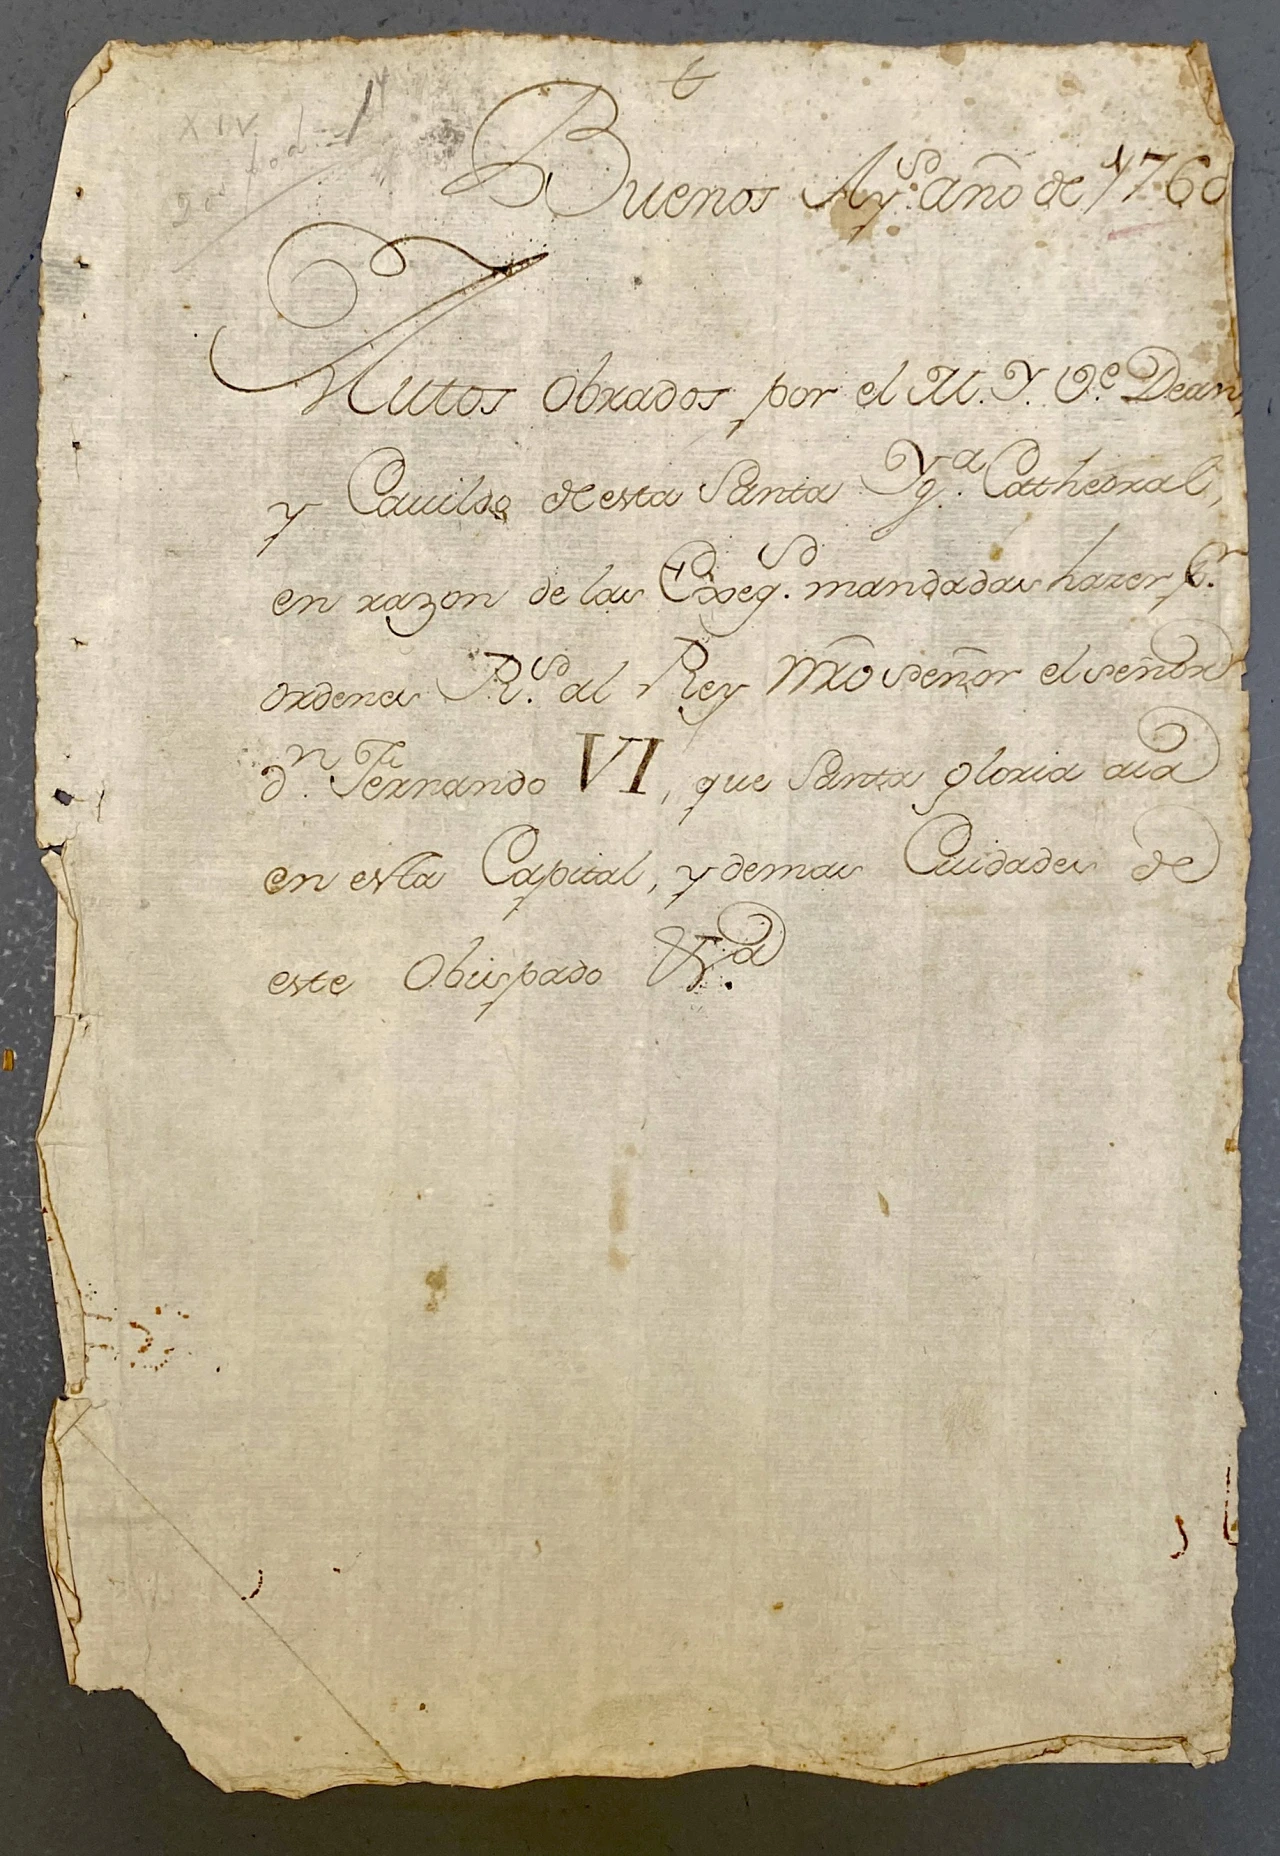 Buenos Ays. año de 1760
Autos Obrados por el M. Y. Ve. Dean,
y Cavildo de esta Santa Yga. Cathedral,
en razon de las Exegs. mandadas hazer pr.
ordenes Rs. al Rey Nro señor el señor
dn. Fernando VI, que Santa gloria aia
en esta Capital, y demas Ciudades de
este Obispado &a.